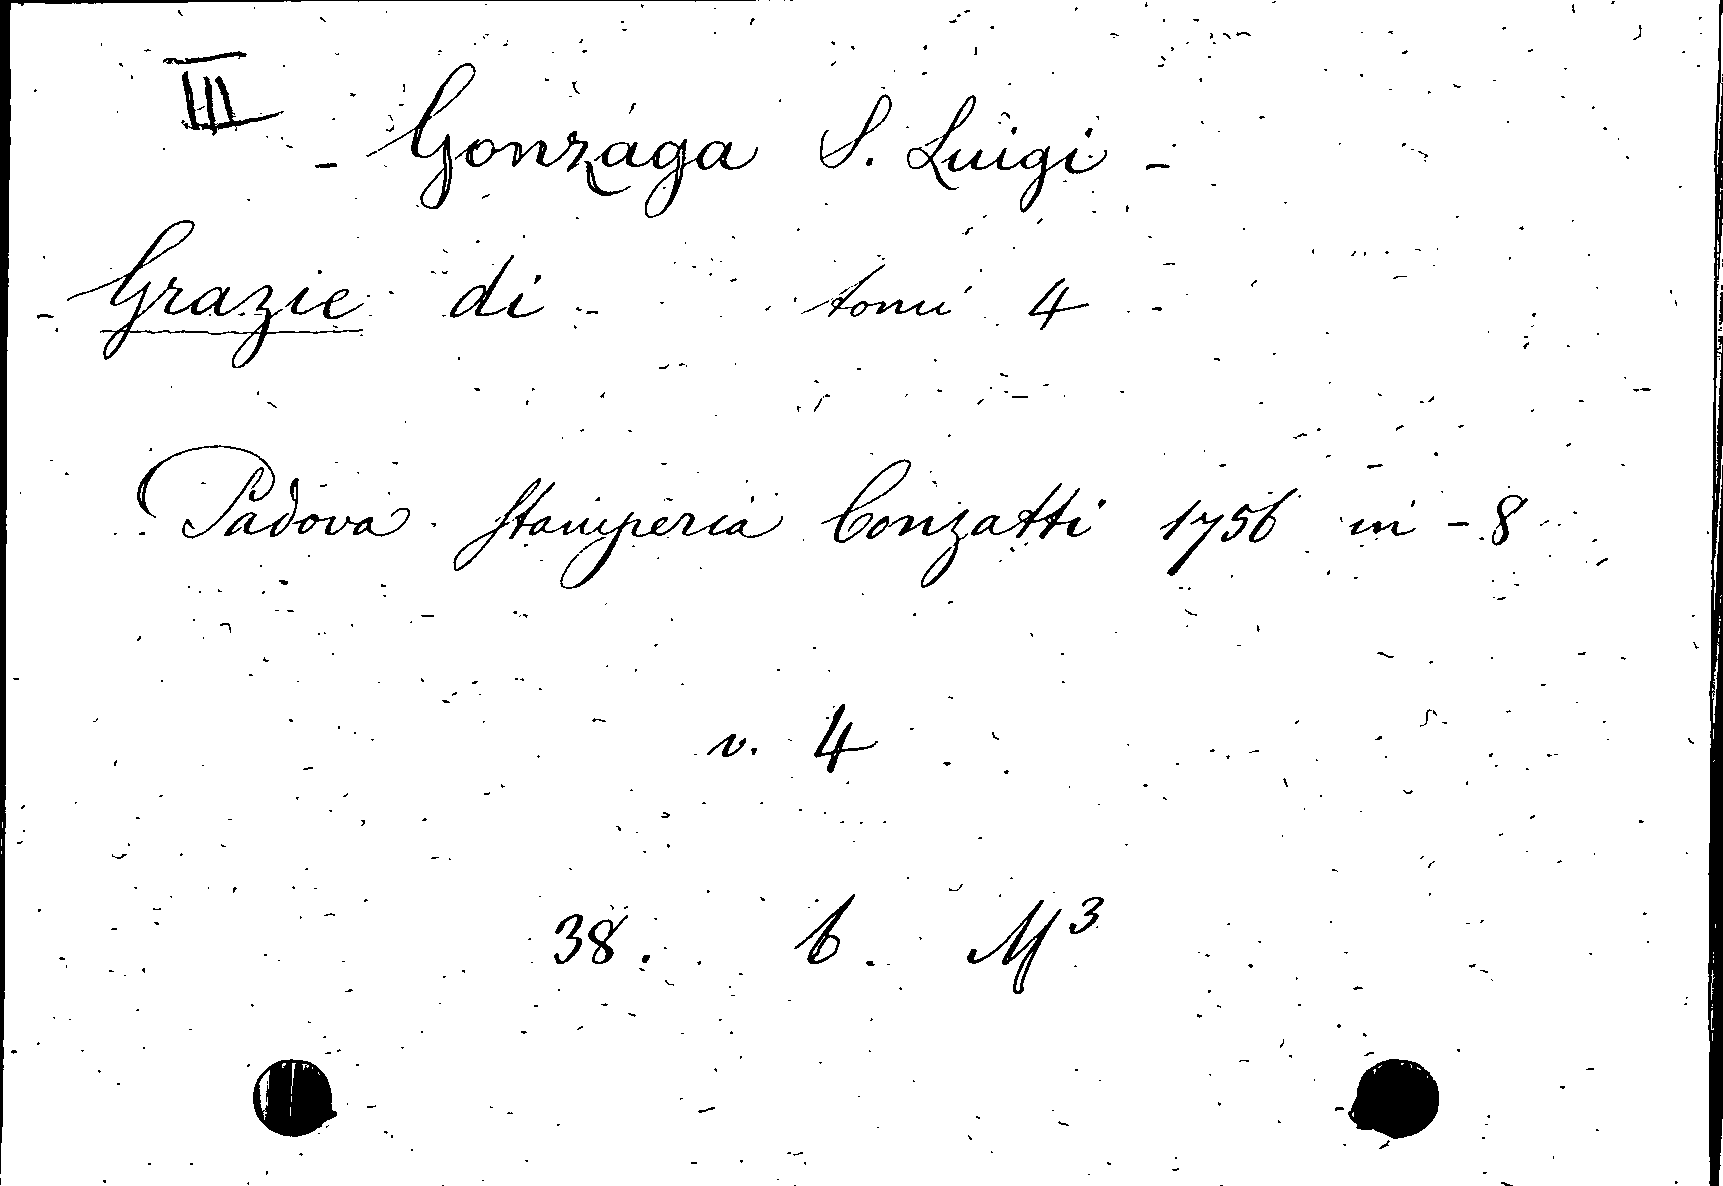 III
- Gonzaga S. Luigi -
- Grazie di - tomi 4 -
Padova Stamperia Conzatti 1756 in - 8
v. 4
38. b. M³